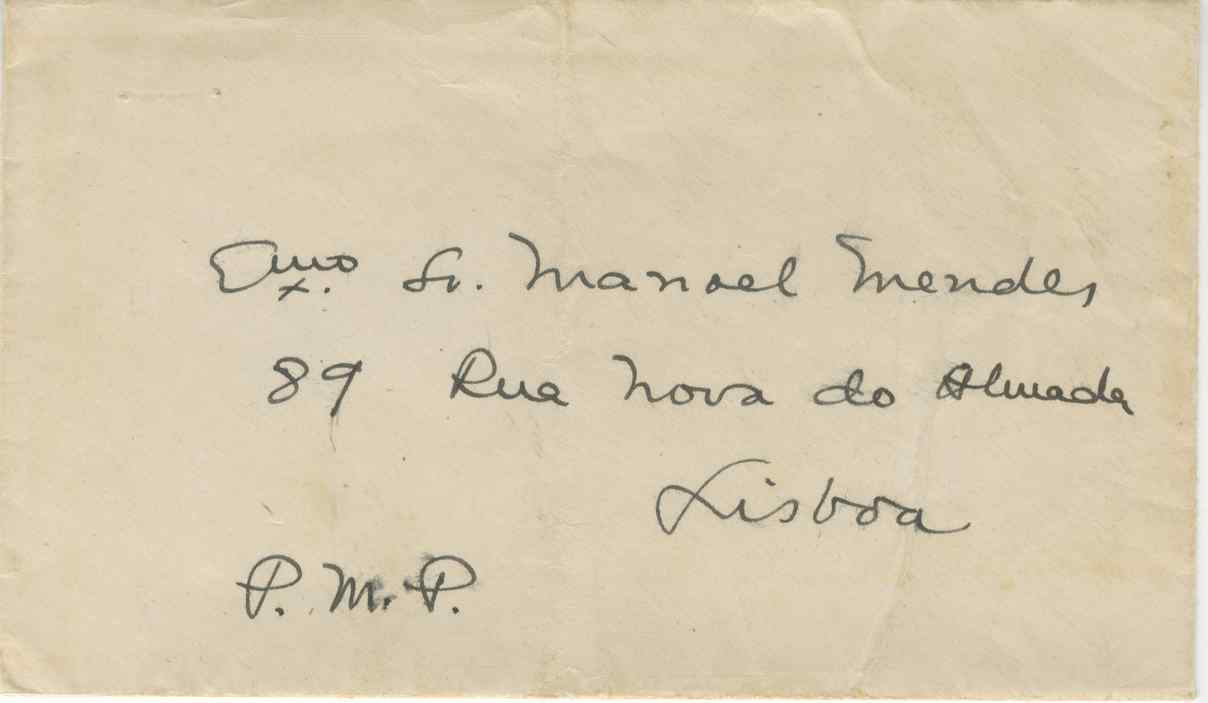 Exmo. Sr. Manoel Mendes
89 Rua Nova do Almada
Lisboa
P. M. P.